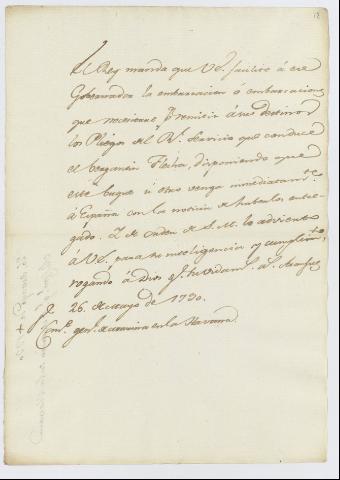 12
El Rey manda que V.S. facilite á ese
Gobernador la embarcacion ó embarcaciones
que necesitare pª remitir á sus destinos
los Pliegos del Rl. Servicio que conduce
el bergantin Flecha, disponiendo que
este buque ú otro venga inmediatamte.
á España con la noticia de haberlos entre-
gado. Y de orden de S. M. lo advierto
á V.S. para su inteligencia y cumplimto.,
rogando á Dios gue. su vida ms. as. Aranjuez
26. de mayo de 1790.
Comte. genl. de marina en la Havana